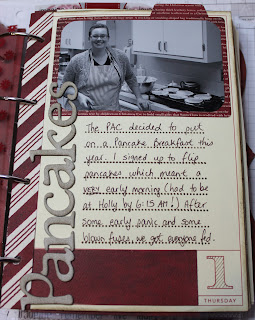 Pancakes
The PAC decided to put
on a Pancake Breakfast this
year. I signed up to flip
pancakes which meant a
very early morning (had to be
at Holly by 6:15 AM!) After
some early panic and some
blown fuses we got everyone fed.
1
THURSDAY